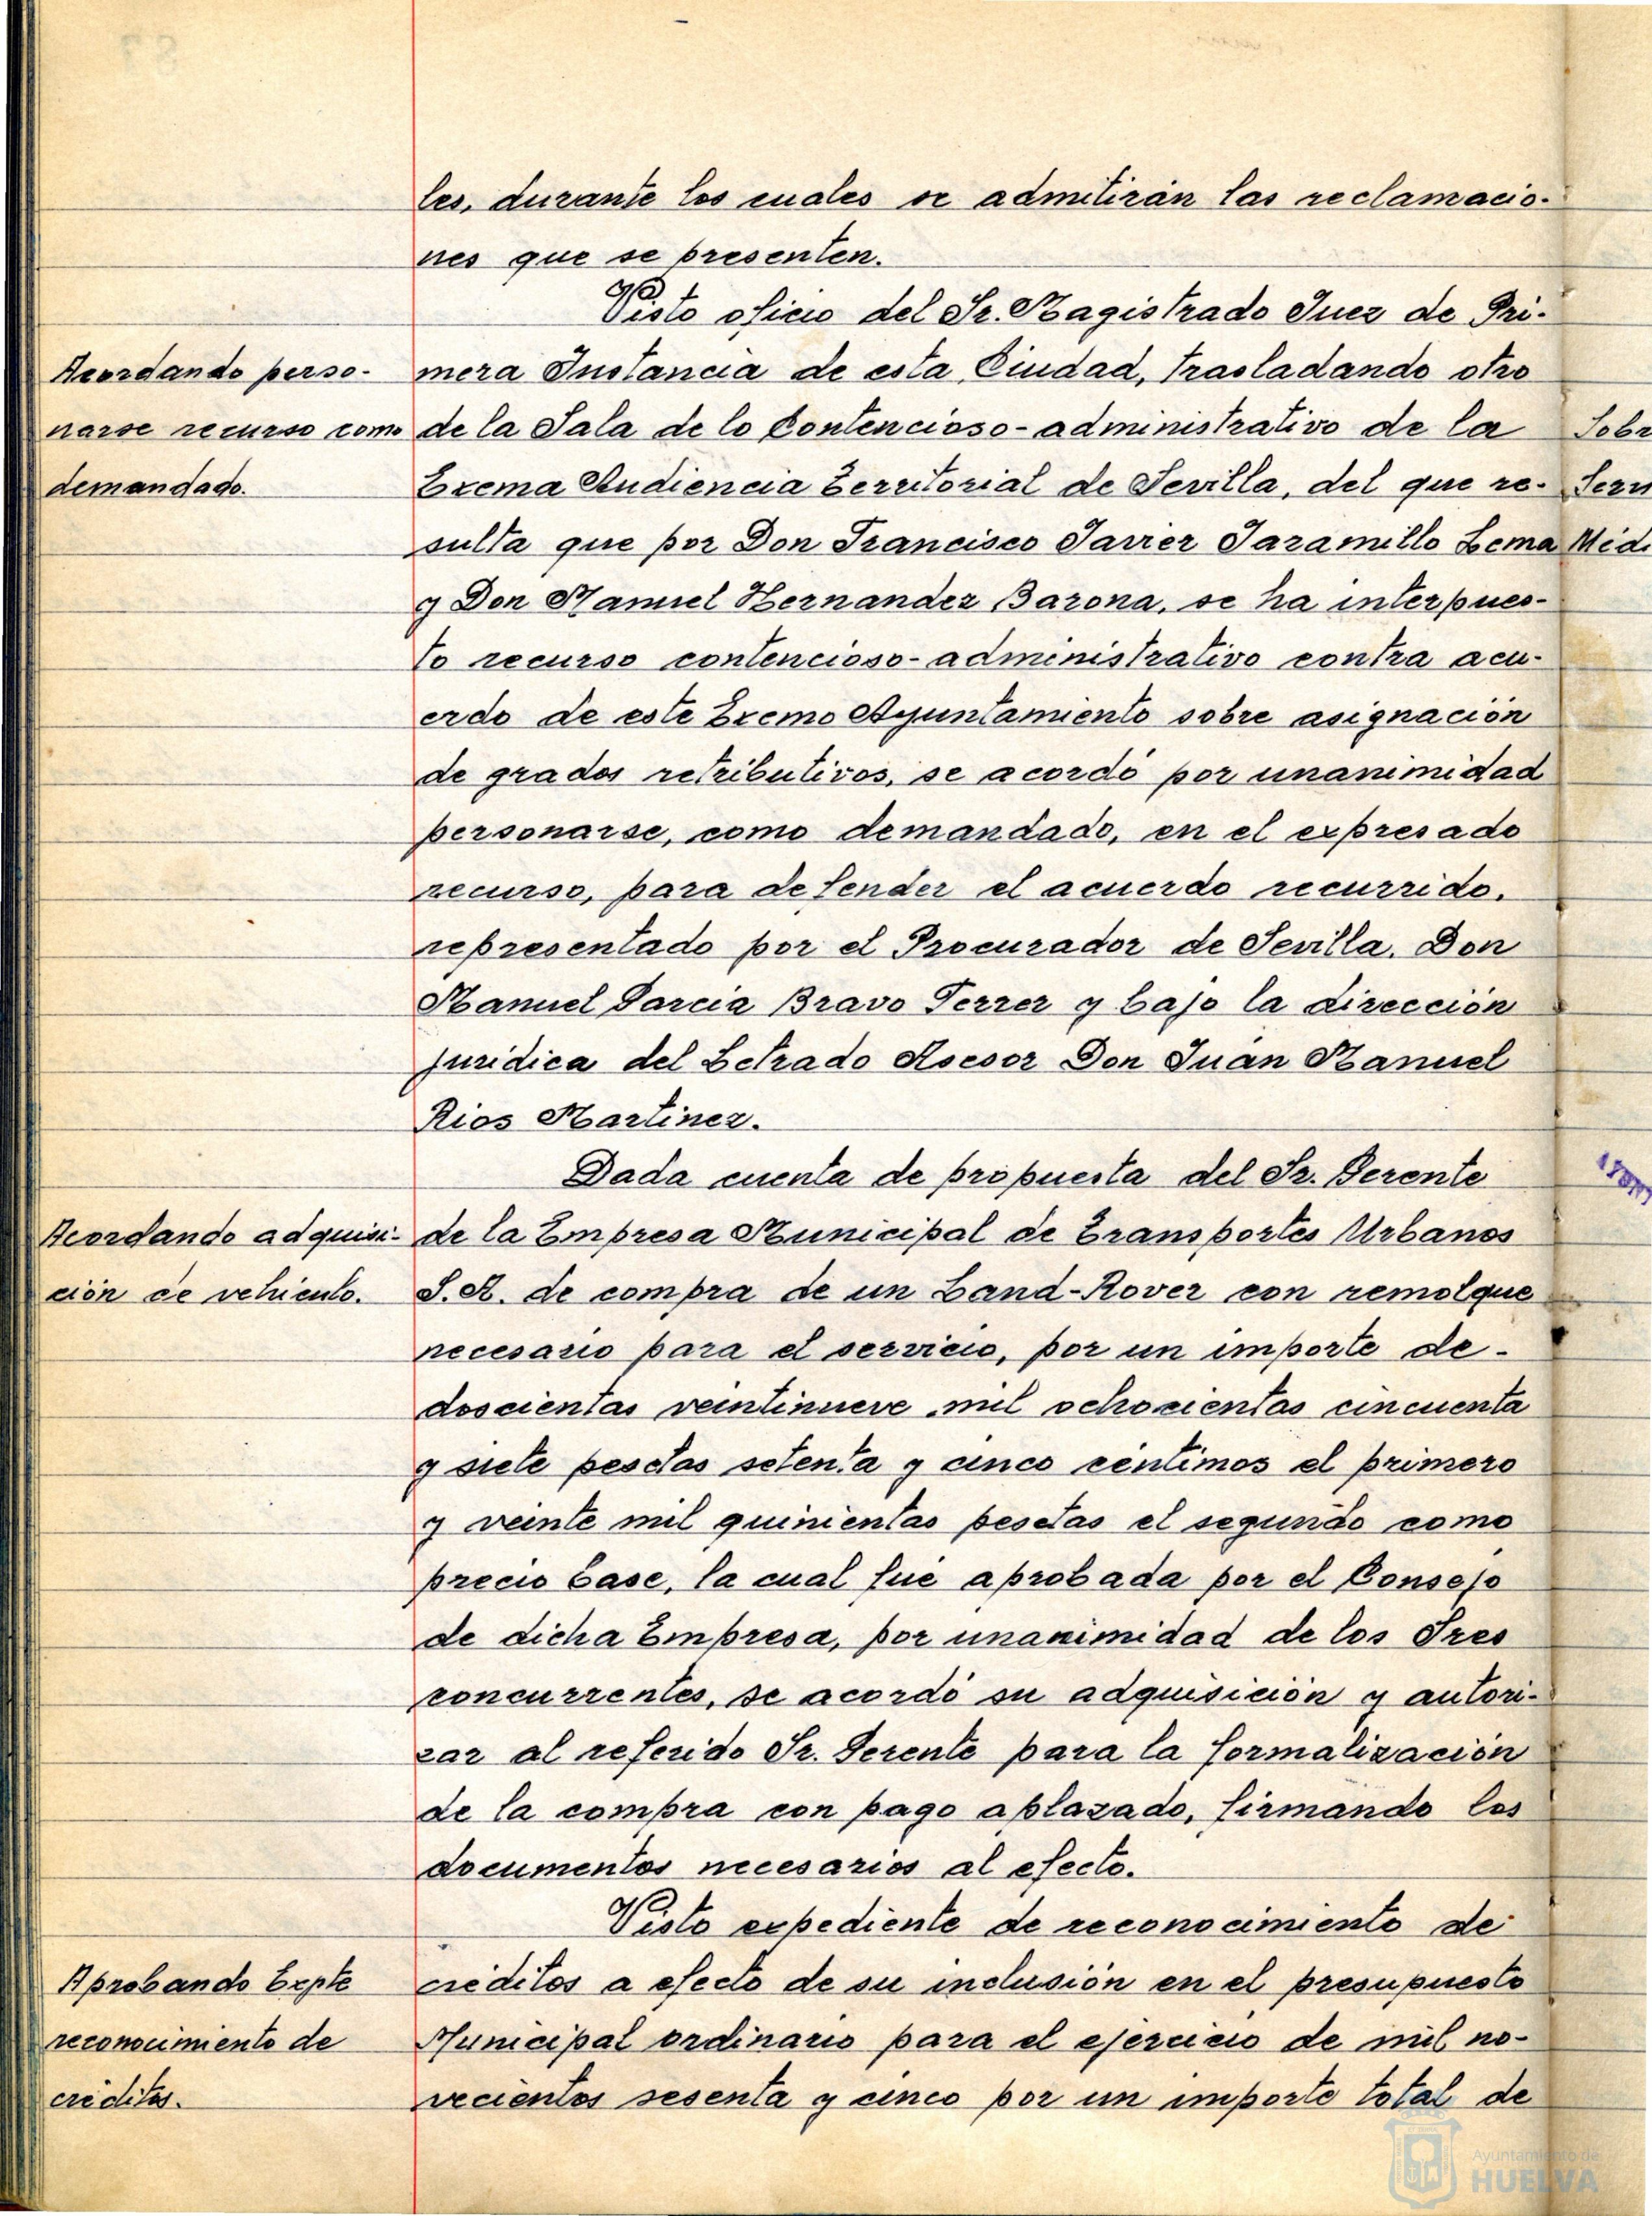 les, durante los cuales se admitirán las reclamacio-
nes que se presenten.
Visto oficio del Sr. Magistrado Juez de Pri-
Acordando perso-
narse recurso como
demandado.
mera Instancia de esta Ciudad, trasladando otro
de la Sala de lo Contencioso-administrativo de la
Excma Audiencia Territorial de Sevilla, del que re-
sulta que por Don Francisco Javier Jaramillo Lema
y Don Manuel Hernandez Barona, se ha interpues-
to recurso contencioso-administrativo contra acu-
erdo de este Excmo Ayuntamiento sobre asignación
de grados retributivos, se acordó por unanimidad
personarse, como demandado, en el expresado
recurso, para defender el acuerdo recurrido,
representado por el Procurador de Sevilla, Don
Manuel Garcia Bravo Ferrer y bajo la dirección
juridica del Letrado Asesor Don Juan Manuel
Rios Martinez.
Dada cuenta de propuesta del Sr. Gerente
Acordando adquisi-
ción de vehiculo.
de la Empresa Municipal de Transportes Urbanos
S.A. de compra de un Land-Rover con remolque
necesario para el servicio, por un importe de-
doscientas veintinueve mil ochocientas cincuenta
y siete pesetas setenta y cinco céntimos el primero
y veinte mil quinientas pesetas el segundo como
precio base, la cual fué aprobada por el Consejo
de dicha Empresa, por unanimidad de los Sres
concurrentes, se acordó su adquisición y autori-
zar al referido Sr. Gerente para la formalización
de la compra con pago aplazado, firmando los
documentos necesarios al efecto.
Visto expediente de reconocimiento de
Aprobando Expte
reconocimiento de
créditos.
créditos a efecto de su inclusión en el presupuesto
Municipal ordinario para el ejercicio de mil no-
vecientos sesenta y cinco por un importe total de
Sobr
Ayuntamiento de
HUELVA